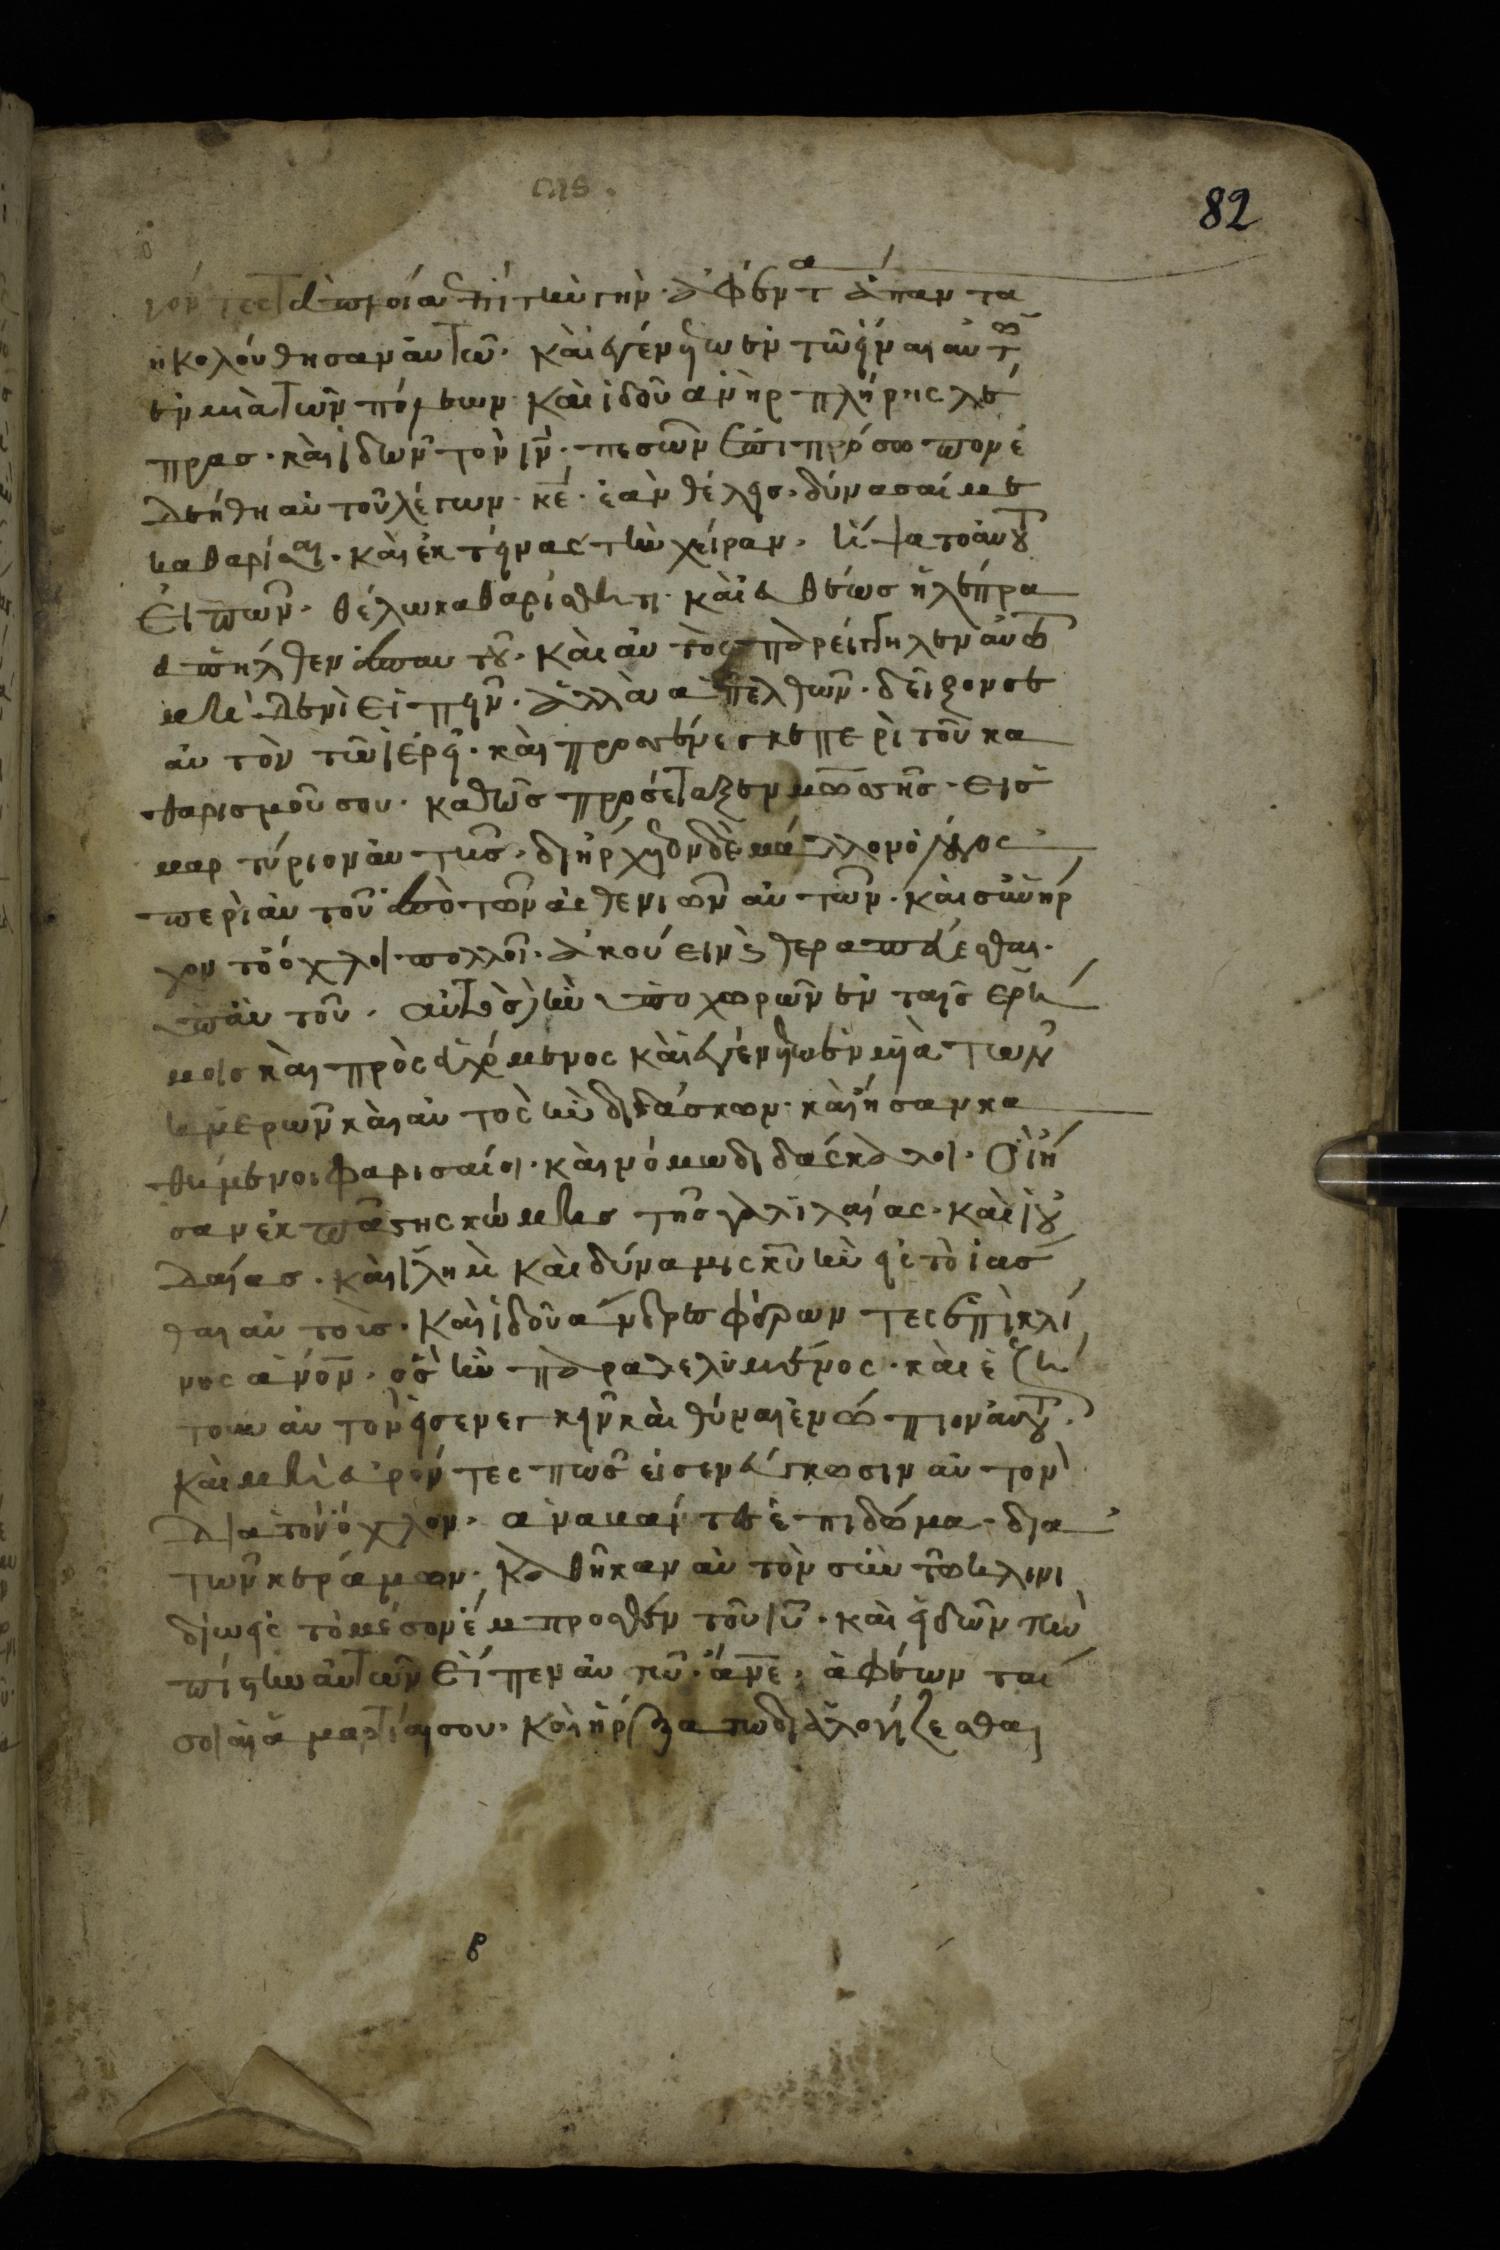 82
γόν τες τὰ πλοία ἐπὶ τὴν γὴν. ἀφέντ ἅπαντα
ηκολούθησαν ἀυτῶ. κὰι ἐγένετο ἐν τῶ εἶναι αὐτ
ἐν μιὰ τῶν πόλεων. κὰι ἰδοῦ ἀνὴρ πλήρης λε
πρασ. κὰι ἰδῶν τὸν ιν. πεσῶν ἐπι πρόσωπον ἐ
δεήθη αὐτοῦ λέγων. κε. ἐὰν θέλησ. δύνασαί με
καθαρίσαι. κὰι ἐκτείνας τὴν χείραν. ἥψατο ἀυτοῦ
εἰπῶν. θέλω καθαρίσθητι. κὰι ἐυθέως ἡ λέπρα
ἀπήλθεν ἀπ αυτοῦ. κὰι αὐτὸς παρείγγειλεν ἀυτῶ
μηδενὶ εἰπεῖν. ἀλλὰ ἀπελθῶν. δεῖξον σε
αὐτὸν τῶ ἱερεῖ. κὰι προσένεγκε περὶ τοῦ κα
θαρισμοῦ σου. καθῶς προσέταξεν μωσῆς. εἰσ
μαρτύριον ἀυτοῖς. διήρχετο δὲ μάλλον ὁ λόγος
περὶ αὐτοῦ ἀπὸ τῶν ἀσθενιῶν αὐτῶν. κὰι συνήρ
χοντο ὄχλοι πολλοῖ. ἀκούειν κ θεραπεύεσθαι.
ὑπ ἀυτοῦ. ἀυτὸς ἦν ὑποχωρῶν ἐν ταῖς ερή
μοις κὰι προσευχόμενος κὰι ἐγένετο ἐν μιὰ τῶν
ἡμερῶν κὰι αὐτὸς ἦν διδάσκων. κὰι ἦσαν κα
θήμενοι φαρισαίοι. κὰι νόμωδιδάσκαλοι. οἳ ἦ
σαν ἐκ πάσης κώμης τῆς γαλιλαίας. κὰι ἰου
δαίας. κὰι ιλημ κὰι δύναμις κυ ἦν εἰς τὸ ἰασ
θαι αὐτοὶς. κὰι ἰδοῦ ἄνδρες φέροντες ἐπὶ κλί
νης ἀνον. ὃς ἦν παραλελυμένος. κὰι ἐζή
τουν αὐτον εἰσενεγκεῖν κὰι θῦναι ἐνώπιον ἀυτοῦ.
κὰι μὴ ἑυρόντες πῶς εἰσενέγκωσιν αὐτὸν
δια τὸν ὄχλον. ἀναβάντες ἐπι δῶμα. δια
τῶν κεράμων. καθῆκαν αὐτὸν σὺν τῶ κλινι
δίω εἰς τὸ μέσον ἐμπροσθεν τοῦ ιυ. κὰι εἰδῶν τὴν
πίστιν ἀυτῶν εἶπεν αὐτῶ. ἄνε. ἀφέωνται
σοι αἱ ἁμαρτίαι σου. κὰι ἤρξατο διαλογίζεσθαι